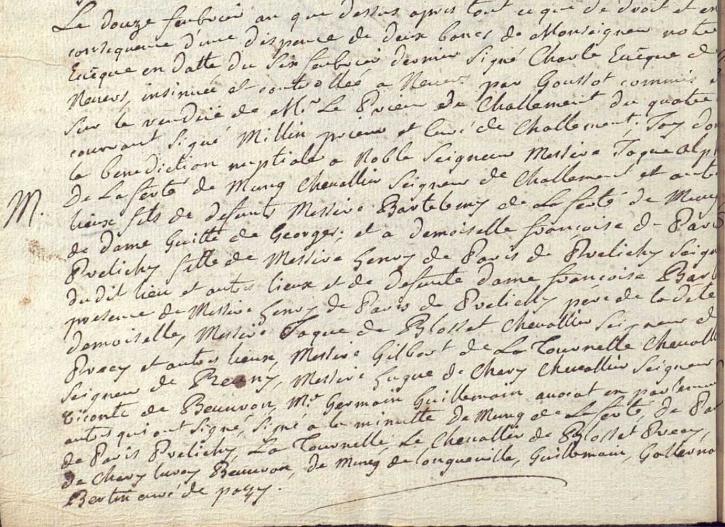 Le douze feubvrier an que dessus apres tout ce que de droit et en
consequence d'une dispence de deux bancs de Monseigneur notre
Eveque en datte du six feubvrier dernier signé Charle Eveque de
Nevers, insinuée et controlleé a Nevers par Goussot commis
sur le vendüe de Mr. Le Prieur de Challement du quatre
courrant signé Millin prieur et curé de Challement. Jay don
la benediction nuptiale a Noble Seigneur Messire Jaque
De Laferté de Mung Chevallier Seigneur de Challement et autres
M.
lieux fils de defunts Messire Bartelemy de Laferté de Mung
de dame Guitte de Georges, et a demoiselle francoise de Paris
Pvelichy fille de Messire henry de Paris de Pvelichy Seign
dudit lieu et autres lieux et de defunte dame francoise Barb
presence de Messire henry de Paris de Pvelichy pere de la dite
demoiselle, Messire Jaque de Blosset Chevallier Seigneur de
Precy et autres lieux, Messire Gilbert de La Tournelle Chevall
Seigneur de Messire hugue de Chary Chevallier Seigneur
viconte de Beauvon, Mr. Germain Guillemain avocat en parlement
autres qui ont signé, signé a la minutte De Mung de Laferté, de Par
de Paris Pvelichy, La Tournelle, Le Chevallier de Blosset Precy,
de Chary Beuvron, de Mung de Longueville, Guillemain,
Bertin curé de